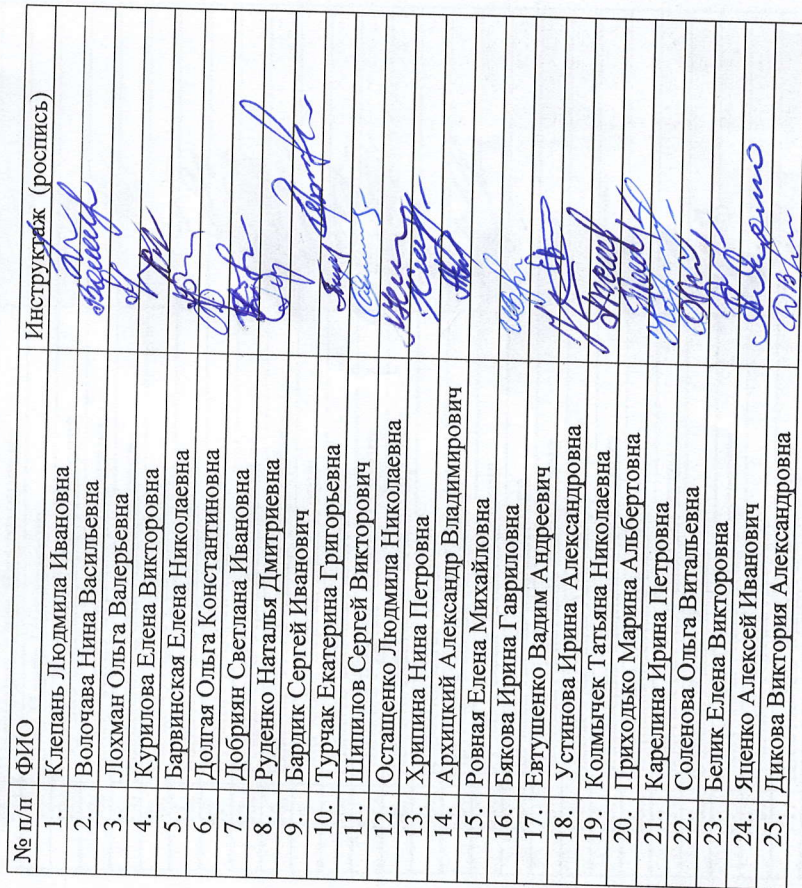 № п/п ФИО Инструктаж (роспись)
1. Клепань Людмила Ивановна
2. Волочава Нина Васильевна
3. Лохман Ольга Валерьевна
4. Курилова Елена Викторовна
5. Барвинская Елена Николаевна
6. Долгая Ольга Константиновна
7. Добриян Светлана Ивановна
8. Руденко Наталья Дмитриевна
9. Бардик Сергей Иванович
10. Турчак Екатерина Григорьевна
11. Шипилов Сергей Викторович
12. Остащенко Людмила Николаевна
13. Хрипина Нина Петровна
14. Архицкий Александр Владимирович
15. Ровная Елена Михайловна
16. Бякова Ирина Гавриловна
17. Евтушенко Вадим Андреевич
18. Устинова Ирина Александровна
19. Колмычек Татьяна Николаевна
20. Приходько Марина Альбертовна
21. Карелина Ирина Петровна
22. Соленова Ольга Витальевна
23. Белик Елена Викторовна
24. Яценко Алексей Иванович
25. Дикова Виктория Александровна